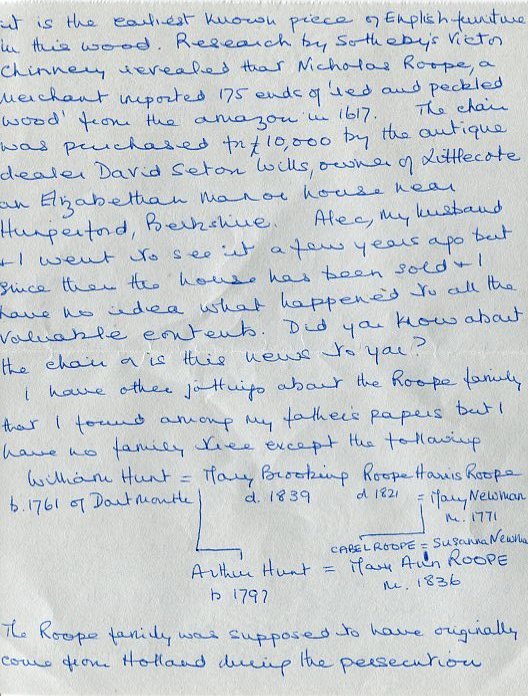 it is the earliest known piece of English furniture
in this wood. Research by Sotheby's Victor
Chinnery revealed that Nicholas Roope, a
merchant imported 175 ends of 'red and peckled
wood' from the amazon in 1617. The chair
was purchased for £10,000 by the antique
dealer David Seton Wills, owner of Littlecote
an Elizabethan Manor house near
Hungerford, Berkshire. Alec, my husband
+ I went to see it a few years ago but
since then the house has been sold + I
have no idea what happened to all the
valuable contents. Did you know about
the chair or is this news to you?
I have other jottings about the Roope family
that I found among my father's papers but I
have no family tree except the following
William Hunt = Mary Brooking Roope Harris Roope
b. 1761 of Dartmouth d. 1839 d 1821 = Mary Newman
m. 1771
CABEL ROOPE = Susanna Newma
Arthur Hunt = Mary Ann ROOPE
b 1797 m. 1836
The Roope family was supposed to have originally
come from Holland during the persecution